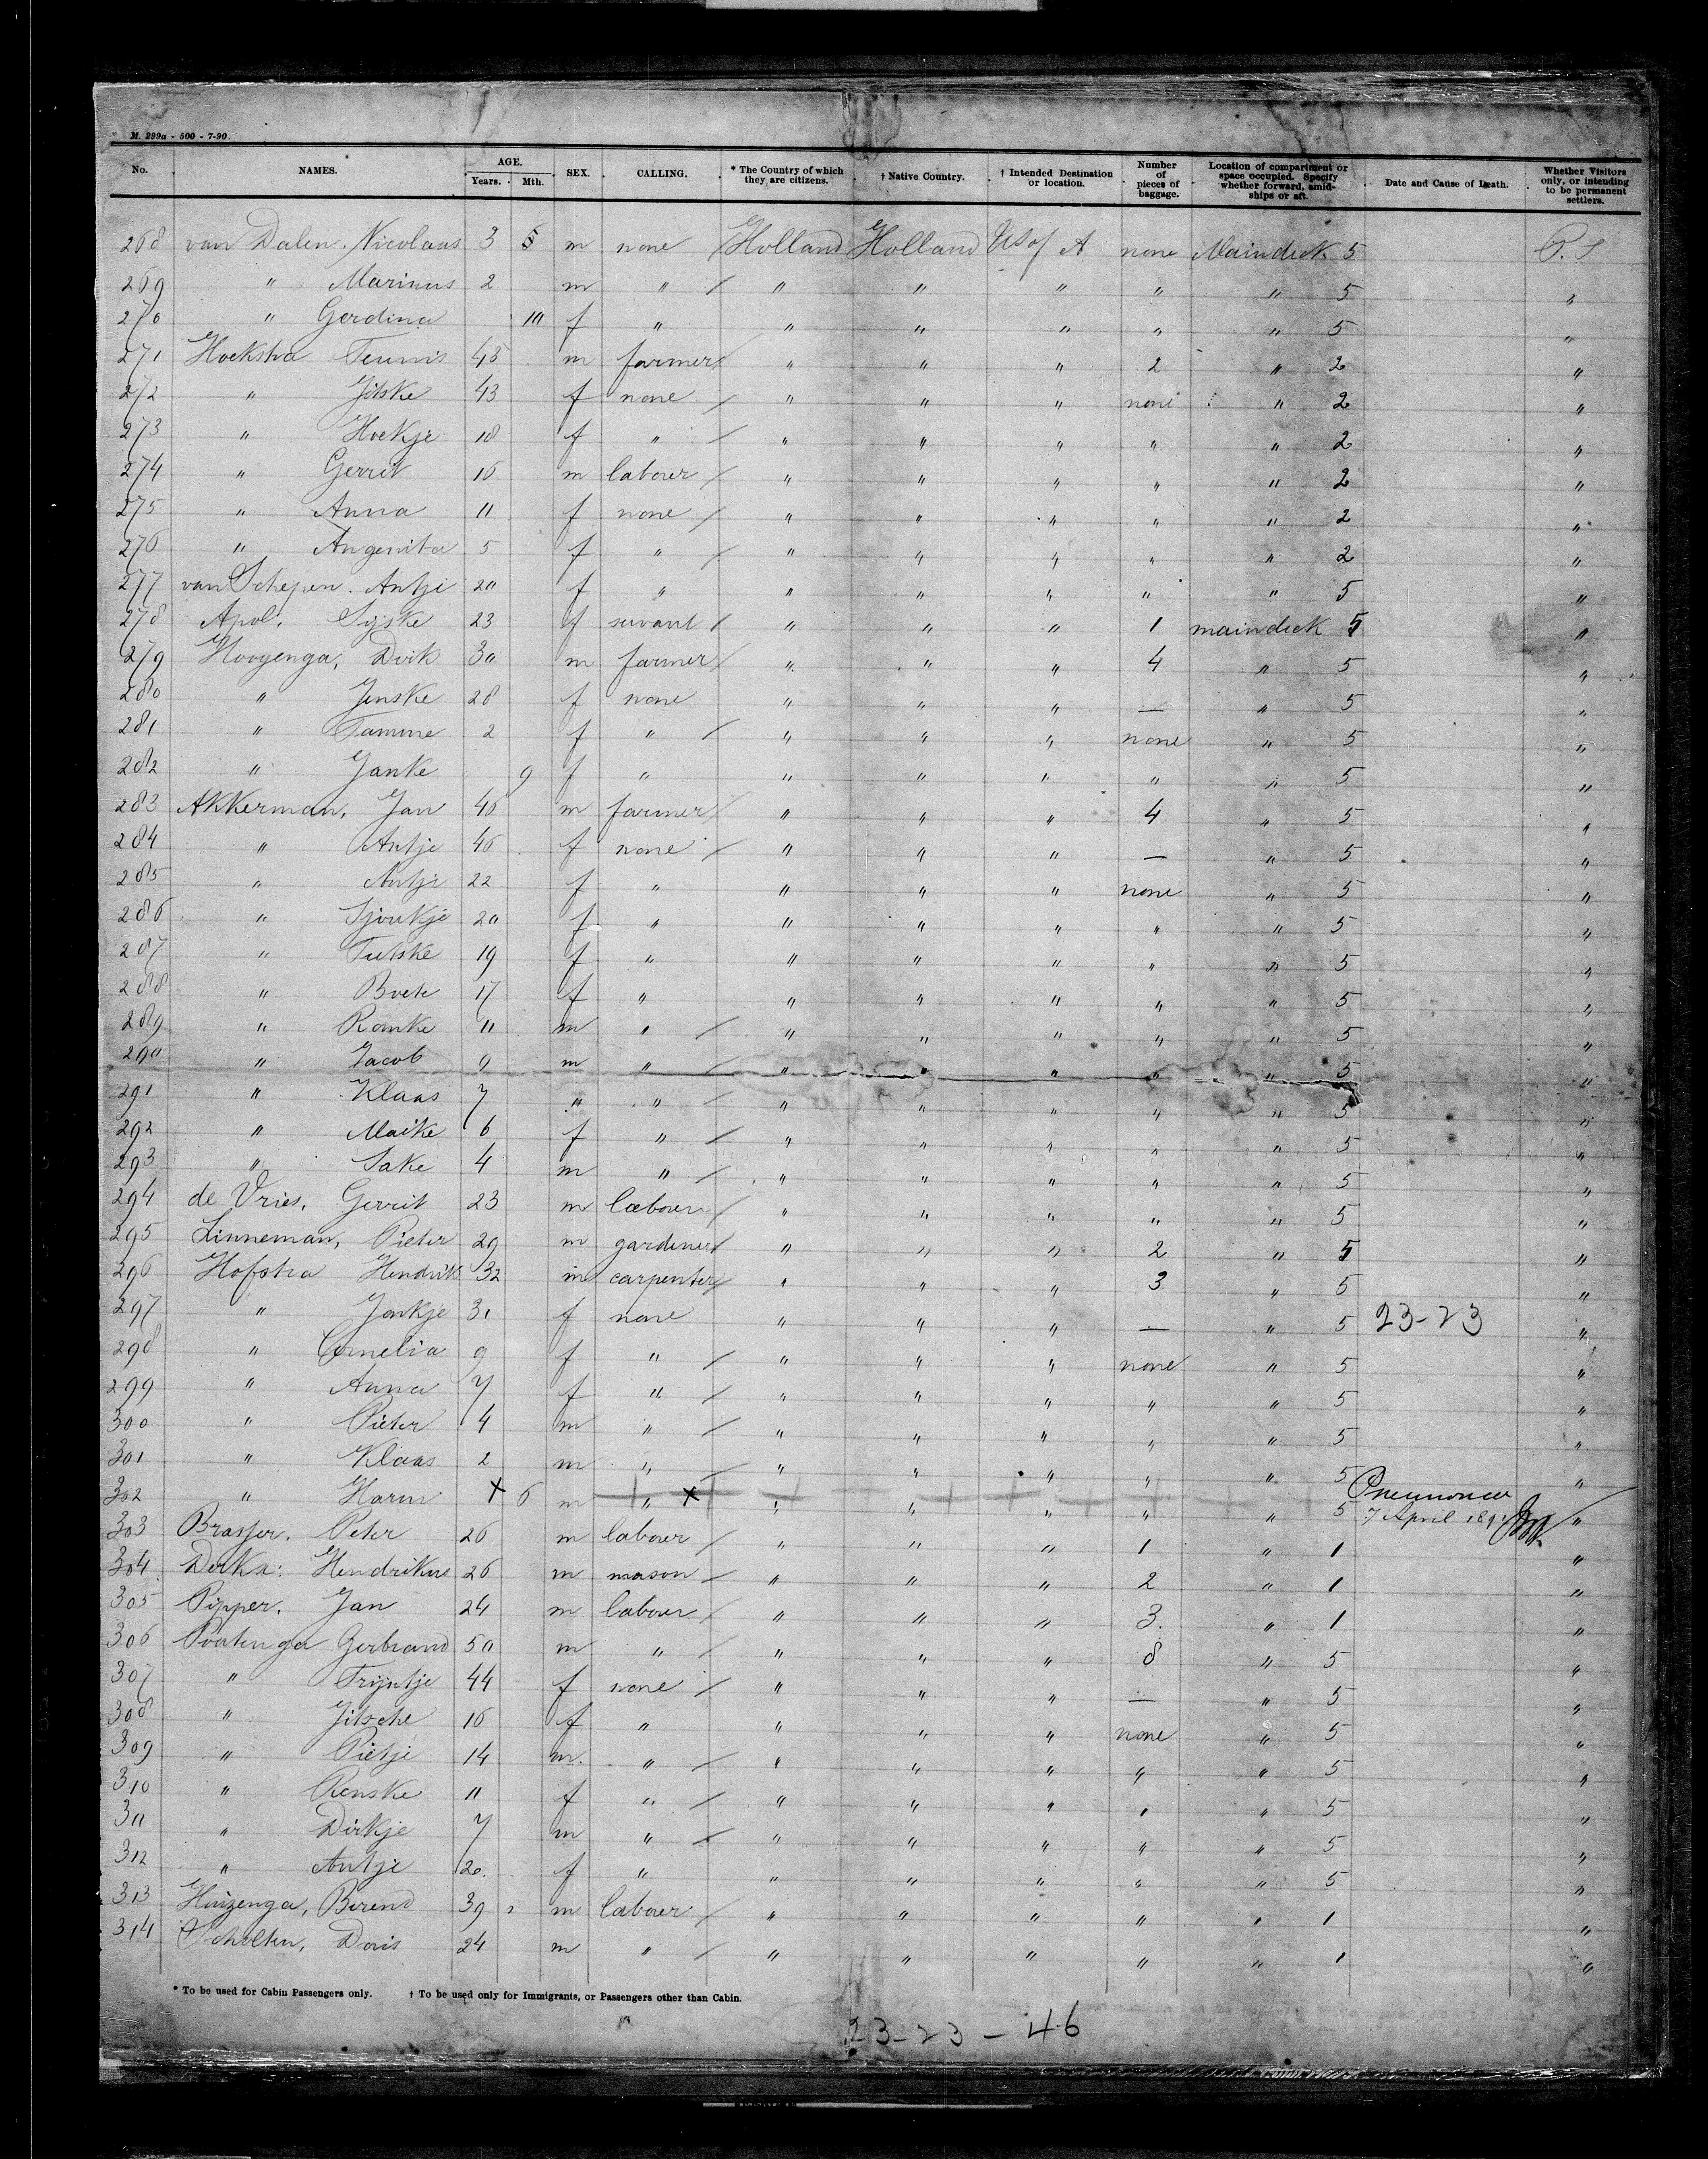 M. 299a - 500 - 7-90.
No. NAMES. AGE. Years. Mth. SEX. CALLING. * The Country of which they are citizens. † Native Country. † Intended Destination or location. Number of pieces of baggage. Location of compartment or space occupied. Specify whether forward, amidships or aft. Date and Cause of Death. Whether Visitors only, or intending to be permanent settlers.
268 van Dalen. Nicolaas 3 m none Holland Holland US of A none Maindeck 5 P.S
269 " Marinus 2 m " / " " " " " 5 "
270 " Gerdina f " " " " " " 5 "
271 Hoekstra Teunis 45 m farmer / " " 2 " 2 "
272 " Jitske 43 f none / " " " none " 2 "
273 " Hoekje 18 f " / " " " " " 2 "
274 " Gerrit 16 m labourer / " " " " " 2 "
275 " Anna 11 f none / " " " " " 2 "
276 " Angenita 5 f " / " " " " " 2 "
277 van Schepen. Antje 20 f " " " " " " 5 "
278 Apol. Sijske 23 f servant / " " " 1 maindeck 5 "
279 Hooyenga, Dirk 30 m farmer / " " " 4 " 5 "
280 " Jenske 28 f none " " " — " 5 "
281 " Tamme 2 f " / " " " none " 5 "
282 " Janke 9 f " " " " " " 5 "
283 Akkerman, Jan 46 m farmer / " " " 4 " 5 "
284 " Antje 46 f none / " " " — " 5 "
285 " Antje 22 f " " " " none " 5 "
286 " Sjoukje 20 f " " " " " " 5 "
287 " Tietske 19 f " " " " " " 5 "
288 " 17 f " " " " " " 5 "
289 " Romke 11 m " / " " " " " 5 "
290 " Jacob 9 m " / " " " " " 5 "
291 " Klaas 7 " " / " " " " " 5 "
292 " Maike 6 f " / " " " " " 5 "
293 " Sake 4 m " / " " " " " 5 "
294 de Vries, Gerrit 23 m labourer / " " " " " 5 "
295 Linneman, Pieter 29 m gardener / " " " 2 " 5 "
296 Hofstra Hendrik 32 m carpenter / " " " 3 " 5 "
297 " Jankje 31 f none " " " — " 5 23-23 "
298 " Cornelia 9 f " / " " " none " 5 "
299 " Anna 7 f " / " " " " " 5 "
300 " Pieter 4 m " / " " " " " 5 "
301 " Klaas 2 m " / " " " " " 5 "
302 " Harm 6 m " x " " " " " 5 Pneumonia 7 April 189 "
303 Brasser. Peter 26 m labourer / " " " 1 " 1 "
304 Derks. Hendrikus 26 m mason / " " " 2 " 1 "
305 Pipper. Jan 24 m labourer / " " " 3. " 1 "
306 Postenga Gerbrand 50 m " / " " " 8 " 5 "
307 " Trijntje 44 f none / " " " — " 5 "
308 " Jitsche 16 f " " " " none " 5 "
309 " Pietje 14 m. " / " " " " " 5 "
310 " Renske 11 f " / " " " " " 5 "
311 " Dirkje 7 m " / " " " " " 5 "
312 " Antje 20. f " " " " " " 5 "
313 Huizenga, Berend 39 m labourer / " " " " " 1 "
314 Scholten, Doris 24 m " / " " " " " 1 "
* To be used for Cabin Passengers only. † To be used only for Immigrants, or Passengers other than Cabin.
23-23-46